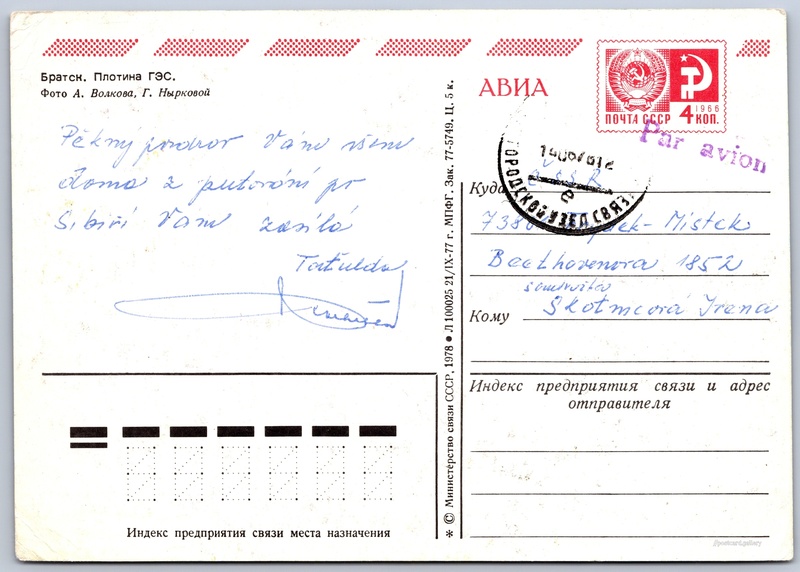 Братск. Плотина ГЭС.
Фото А. Волкова, Г. Нырковой
Pěkný pozdrav Vám všem
doma z putování po
Sibiři Vám zasílá
АВИА
1966
ПОЧТА СССР 4 КОП.
Par avion
ГОРОДСКОЙ УЗЕЛ СВЯЗИ
Куда ČSSR
Místek
Beethovenova 1852
soudružka
Кому Skotnicová Irena
Индекс предприятия связи и адрес
отправителя
Индекс предприятия связи места назначения
* © Министерство связи СССР, 1978 ● Л 100025 21/IX-77 г. МПФГ. Зак. 77-5749. Ц. 5 к.